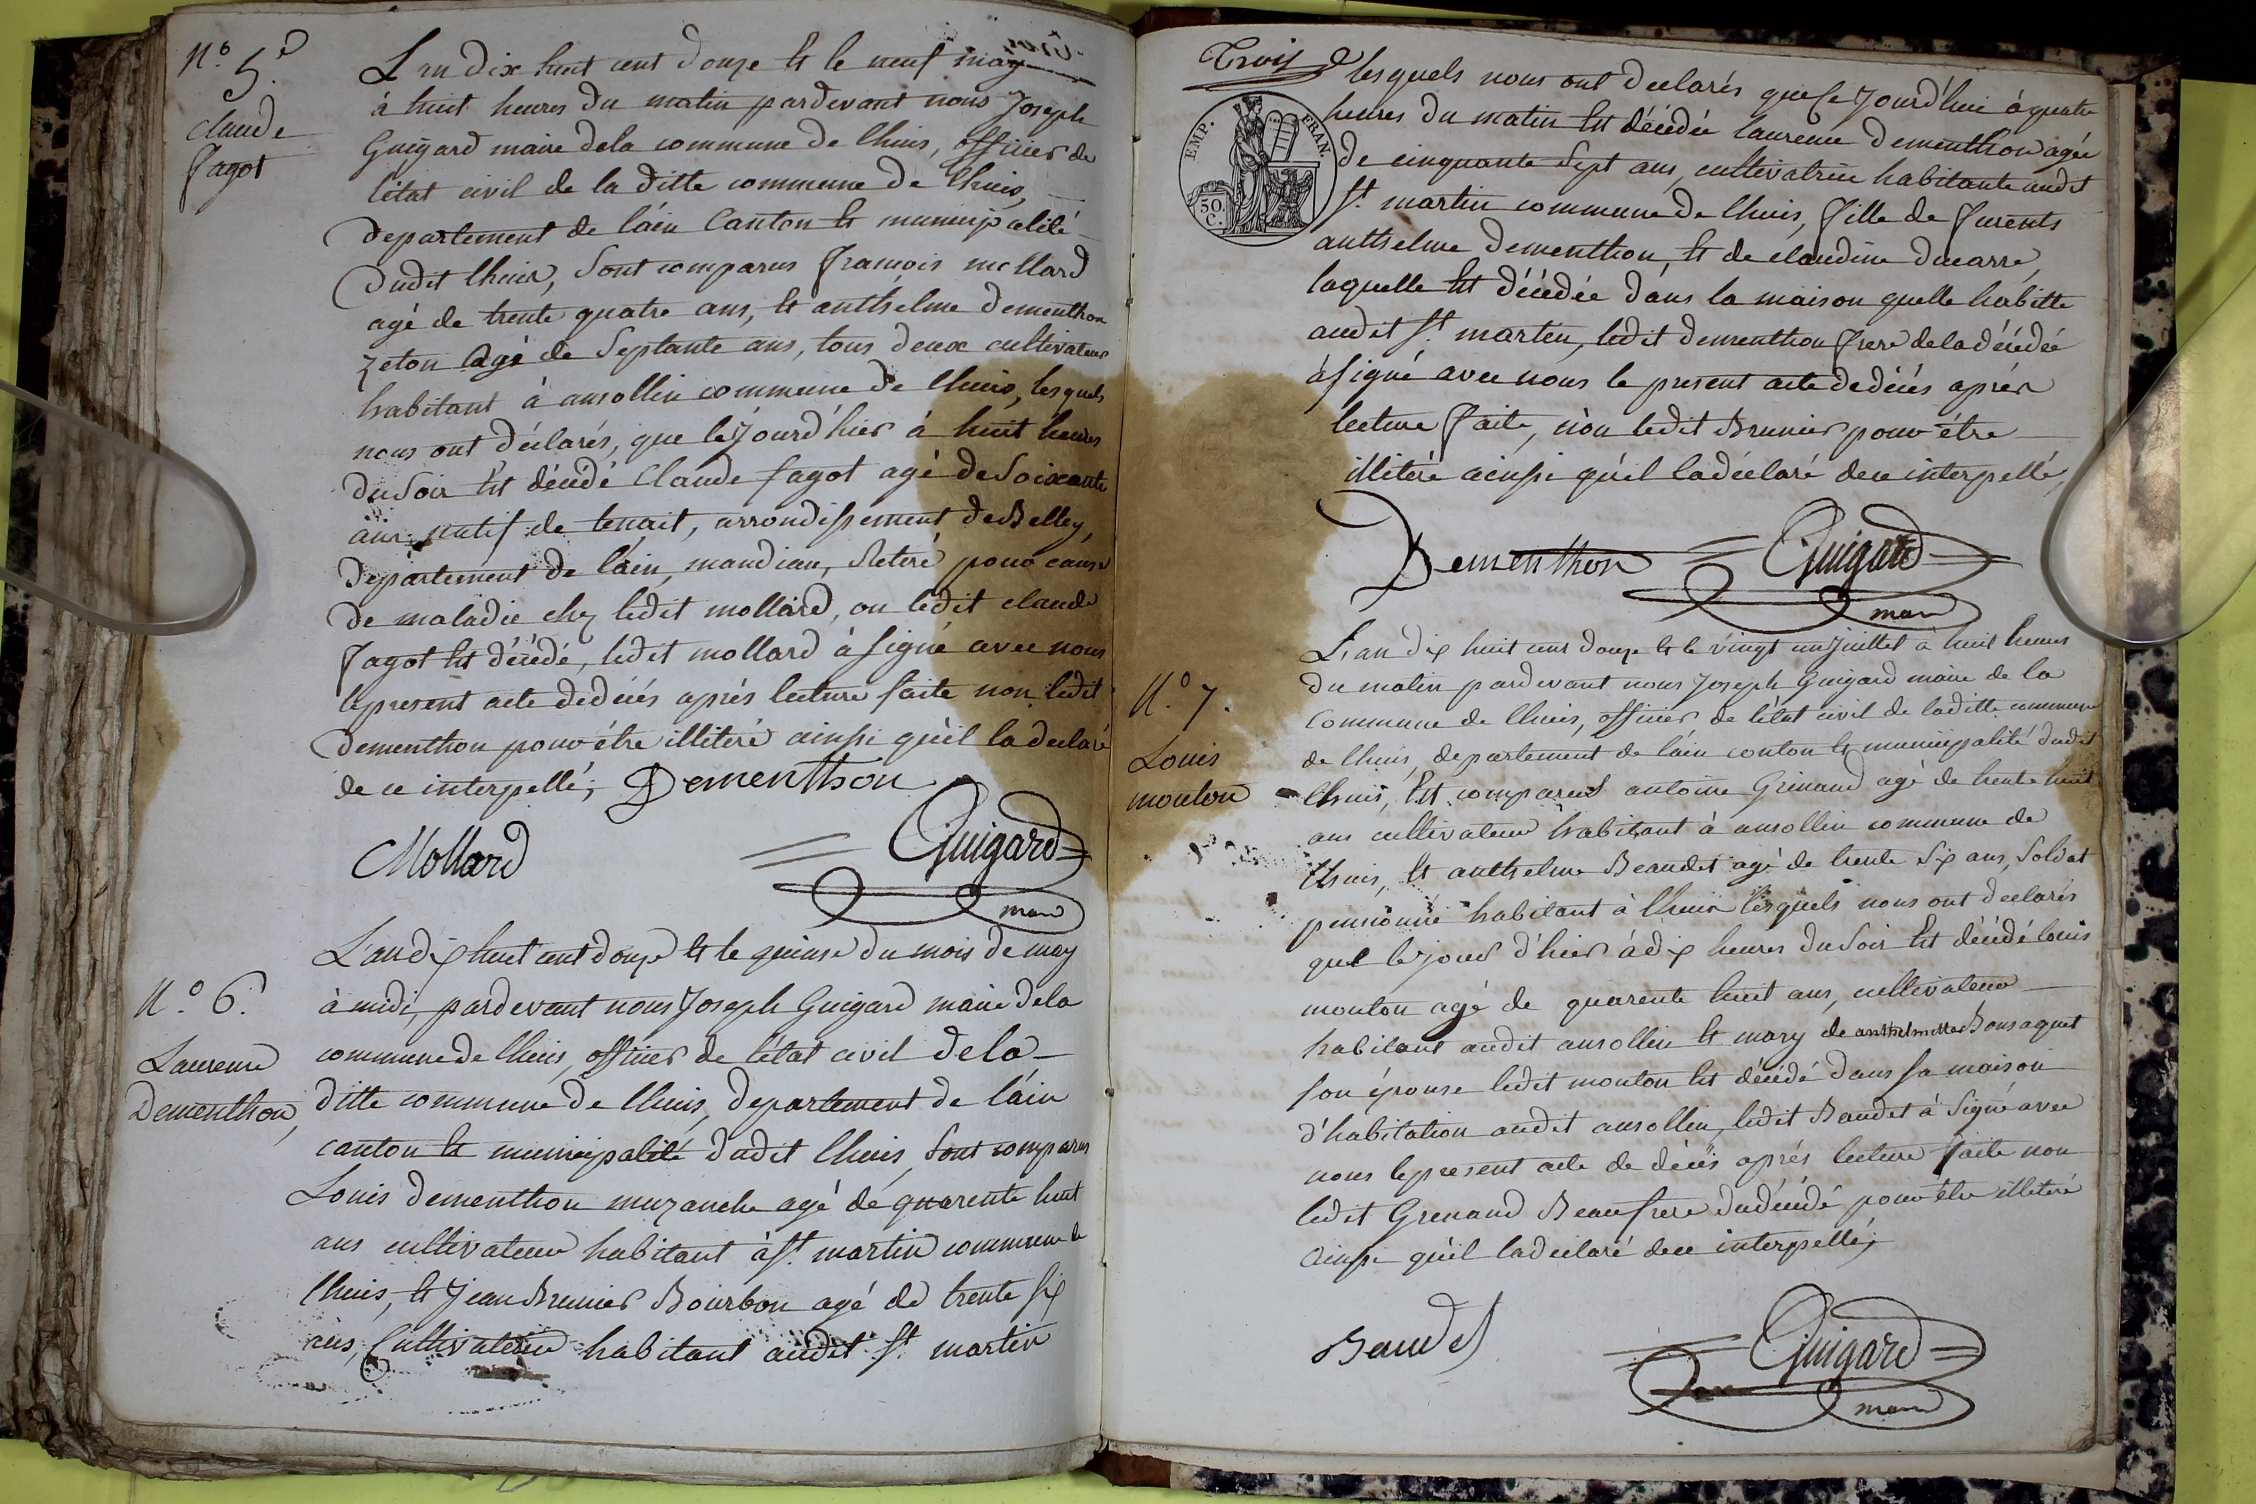 N.° 5.e
Claude
fagot
L'an dix huit cent douze et le neuf may
à huit heures du matin pardevant nous Joseph
Guigard maire dela commune de lhuis, officier de
l'état civil de la ditte commune de lhuis,
departement de l'ain Canton et municipalité
dudit lhuis, Sont comparus françois mollard
agé de trente quatre ans, et anthelme dementhon
zeton agé de Septante ans, tous deux cultivateurs
habitant à ansollin commune de lhuis, lesquels
nous ont déclarés, que lejourd'hier à huit heures
du Soir est décédé Claude fagot agé de Soixante
ans natif de tenait, arrondissement de Belley,
departement de l'ain, mandian, Retiré pour cause
de maladie chez ledit mollard, ou ledit claude
fagot est décédé, ledit mollard à Signé avec nous
lepresent acte dedécés aprés lecture faite non ledit
dementhon pour être illitéré ainsi qu'il la déclaré
de ce interpellé, Dementhon
Mollard Guigard
maire
N.° 6.
Laurence
Dementhon,
L'an dix huit cent douze et le quinse du mois de may
à midi, pardevant nous Joseph Guigard maire dela
commune de lhuis, officier de l'état civil dela
ditte commune de lhuis, departement de l'ain
canton et municipalité dudit lhuis, Sont comparus
Louis dementhon muzanche agé de quarente huit
ans cultivateur habitant à St. martin commune de
lhuis, et Jean Brunier Bourbon agé de trente six
ans, Cultivateur habitant audit St. martin
Trois
lesquels nous ont declarés que ce jourd'hui à quatre
heures du matin est décédée laurence dementhon agée
de cinquante Sept ans, cultivatrice habitante audit
St. martin commune de lhuis, fille de furents
anthelme dementhon, et de claudine ducarre,
laquelle est décédée dans la maison quelle habitte
audit St. martin, ledit dementhon frere dela décédée
à signé avec nous le present acte dedécés aprés
lecture faite, non ledit Brunier pour être
illitéré ainssi qu'il la déclaré dece interpellé,
EMP. FRAN.
50.
C.
Dementhon Guigard
maire
N.° 7.
Louis
mouton
L'an dix huit cent douze et le vingt un juillet à huit heures
du matin pardevant nous Joseph Guigard maire de la
Commune de lhuis, officier de l'état civil de laditte commune
de lhuis, departement de l'ain conton et municipalité dudit
lhuis, Est comparus antoine Grinand agé de trente huit
ans cultivateur habitant à ansollin commune de
lhuis, et anthelme Beaudet agé de trente Six ans, Soldat
pensionné habitant à lhuis lesquels nous ont declarés
que lejour d'hier à dix heures du Soir est décédé louis
mouton agé de quarente huit ans, cultivateur
habitant audit ansollin et mary de anthelmette Bonsaquet
son épouse ledit mouton est décédé dans sa maison
d'habitation audit ansollin, ledit Baudet à Signé avec
nous lepresent acte de décés aprés lecture faite non
ledit Grenand Beaufrere dudécédé pour être illetéré
ainsi qu'il la déclaré dece interpellé,
Baudet Guigard
maire